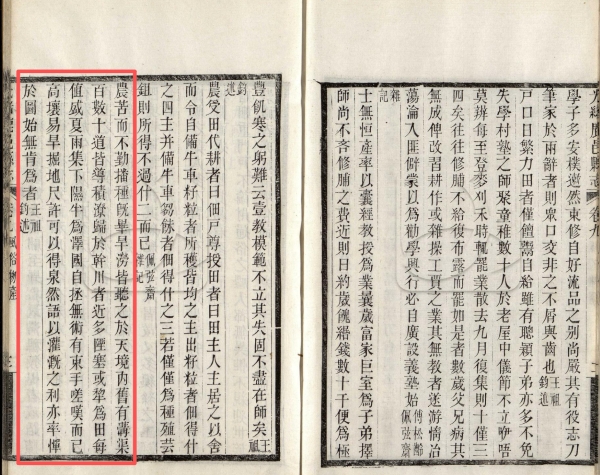 光緒鹿邑縣志 卷九
學子多安樸遬然束修自好流品之別尚嚴其有役志刀
筆家於兩辭者則眾口交非之不居與齒也 王祖鈞述
戶口日繁力田者僅饘鬻自給雖有聰穎子弟亦多不免
失學村塾之師聚童稚數十人於老屋中儀節不立咿唔
莫辨每至登麥刈禾時輒罷業散去九月復集則十僅三
四矣往往修脯不給復布露而罷如是者數歲父兄病其
無成俾改習耕作或雜操工賈之業其無教者遂游惰冶
蕩淪入匪僻棠以為勸學興行必自廣設義塾始 傅松齡佩弦齋
雜記
士無恒產率以囊經教授為業曩歲富家巨室為子弟擇
師尚不吝修脯之費近則日約歲僦緡錢數十千便為極
豐飢寒之躬難云壹教模範不立其失固不盡在師矣 王祖
鈞述
農受田代耕者曰佃戶尊授田者曰田主人主居之以舍
而令自備牛車籽粒者所穫皆均之主出籽粒者佃得什
之四主并備牛車芻秣者佃得什之三若僅僅為種殖芸
鉏則所得不過什二而已 佩弦齋雜記
農苦而不勤播種旣畢旱澇皆聽之於天境內舊有溝渠
百數十道皆導積潦歸於幹川者近多陻塞或犂為田每
值盛夏雨集下隰半為澤國自拯無術有束手嗟嘆而已
高壤易旱掘地尺許可以得泉然語以灌溉之利亦率憚
於圖始無肯為者 王祖鈞述
卷九風俗物產